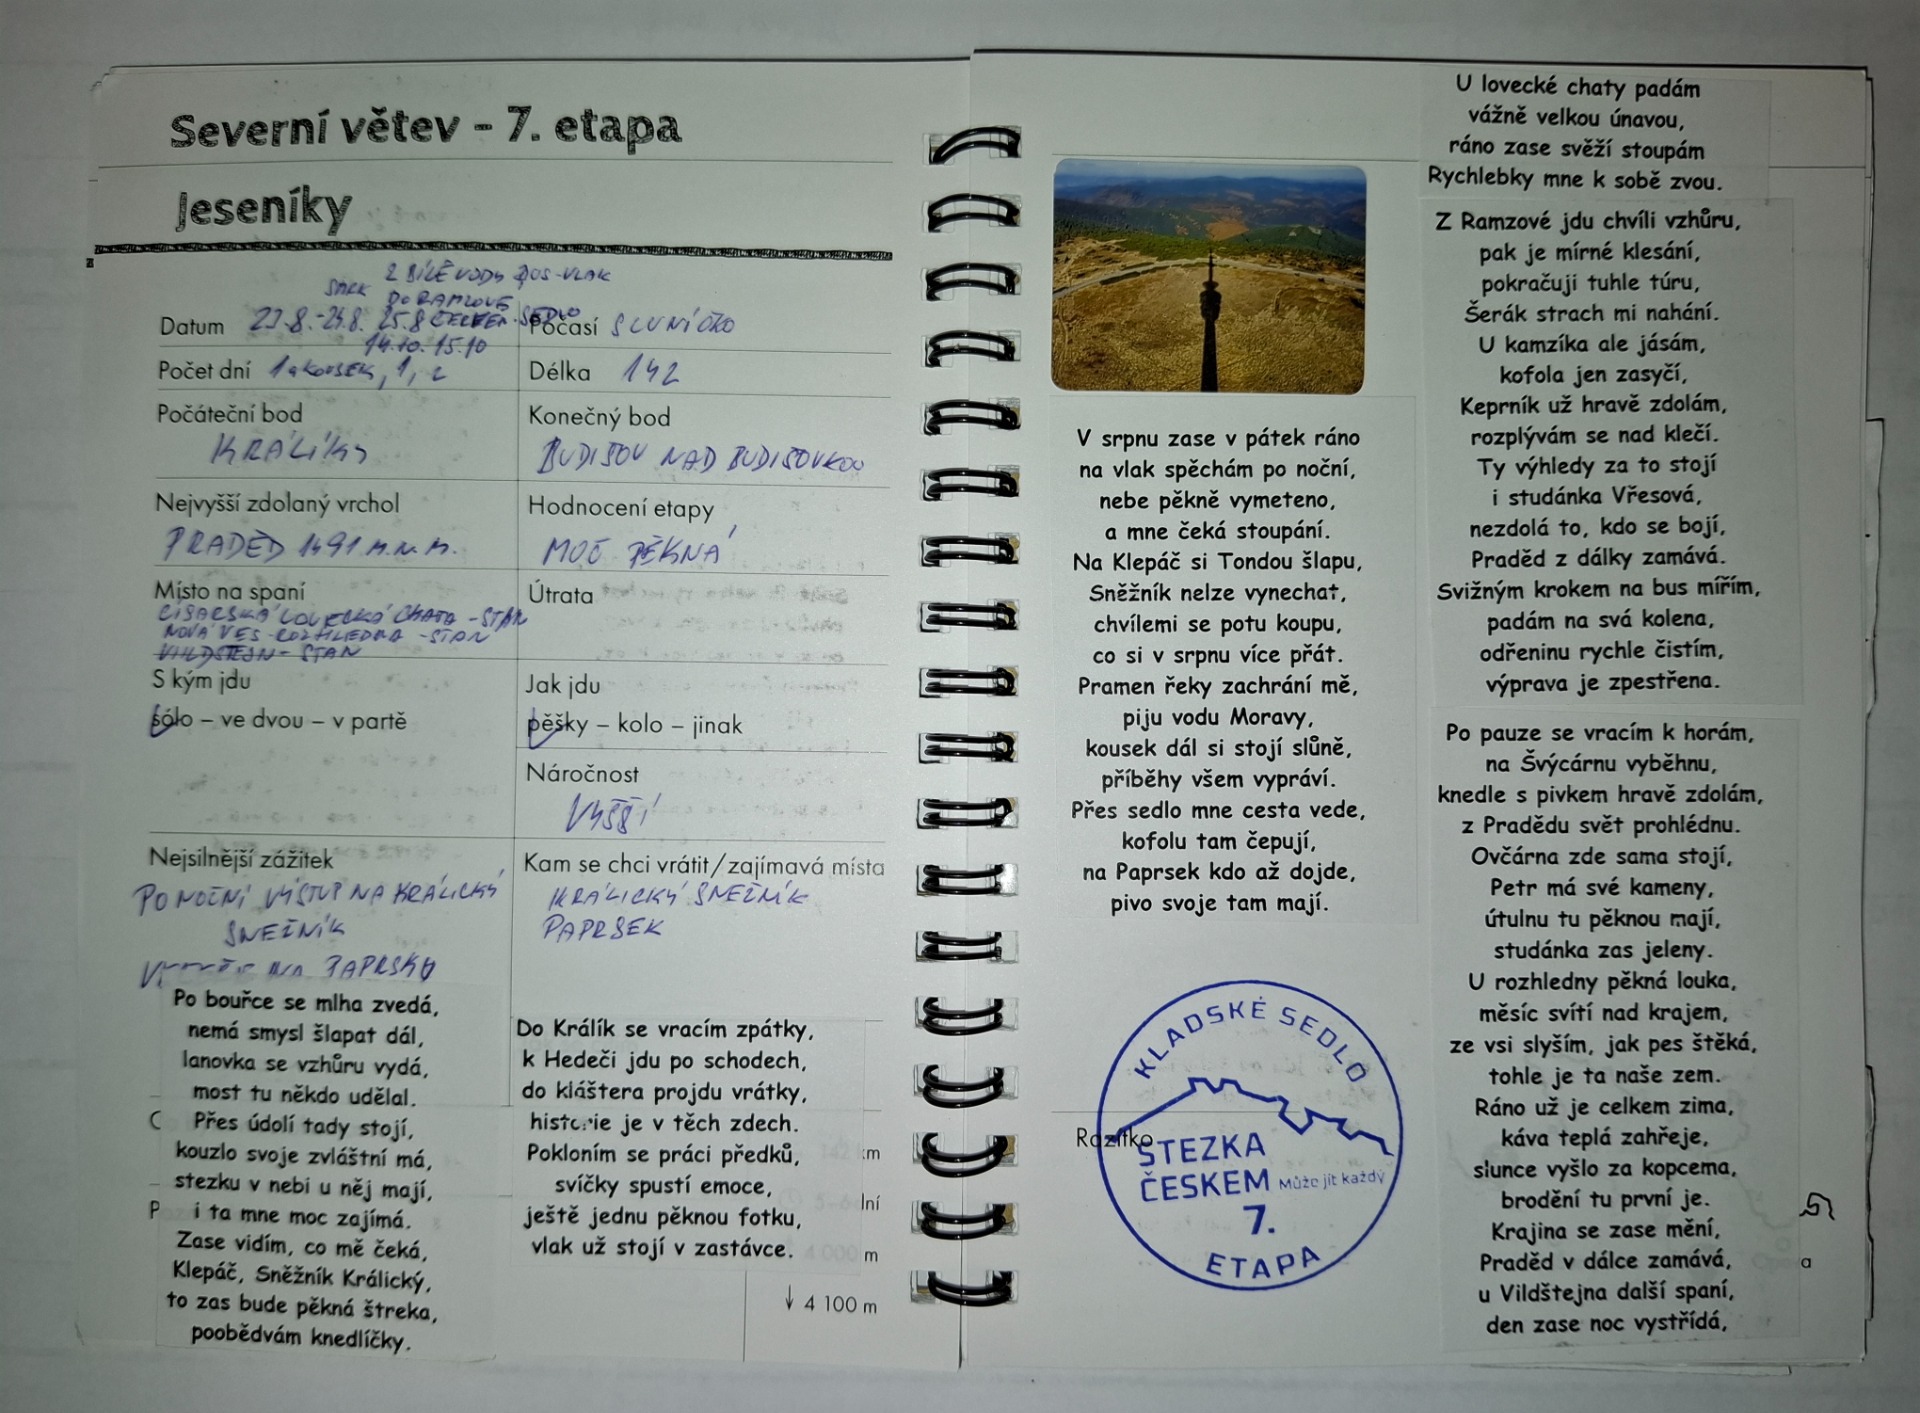 Severní větev - 7. etapa
Jeseníky
Z BÍLÉ VODY BUS-VLAK
DO RAMZOVÉ
Datum 23.8.-24.8. 25.8 ČERVEN. SEDLO
14.10. 15.10
Počasí SLUNÍČKO
Počet dní 1 a KOUSEK, 1, 2
Délka 142
Počáteční bod
KRÁLÍKY
Konečný bod
BUDIŠOV NAD BUDIŠOVKOU
Nejvyšší zdolaný vrchol
PRADĚD 1491 M.N.M.
Hodnocení etapy
MOC PĚKNÁ
Místo na spaní
CÍSAŘSKÁ LOVECKÁ CHATA - STAN
NOVÁ VES - ROZHLEDNA - STAN
VILDŠTEJN - STAN
Útrata
S kým jdu
sólo – ve dvou – v partě
Jak jdu
pěšky – kolo – jinak
Náročnost
VYŠŠÍ
Nejsilnější zážitek
PO NOČNÍ VÝSTUP NA KRÁLICKÝ
SNĚŽNÍK
NA PAPRSKU
Kam se chci vrátit/zajímavá místa
KRÁLICKÝ SNĚŽNÍK
PAPRSEK
Po bouřce se mlha zvedá,
nemá smysl šlapat dál,
lanovka se vzhůru vydá,
most tu někdo udělal.
Přes údolí tady stojí,
kouzlo svoje zvláštní má,
stezku v nebi u něj mají,
i ta mne moc zajímá.
Zase vidím, co mě čeká,
Klepáč, Sněžník Králický,
to zas bude pěkná štreka,
poobědvám knedlíčky.
Do Králík se vracím zpátky,
k Hedeči jdu po schodech,
do kláštera projdu vrátky,
historie je v těch zdech.
Pokloním se práci předků,
svíčky spustí emoce,
ještě jednu pěknou fotku,
vlak už stojí v zastávce.
km
dní
4 000 m
↓ 4 100 m
V srpnu zase v pátek ráno
na vlak spěchám po noční,
nebe pěkně vymeteno,
a mne čeká stoupání.
Na Klepáč si Tondou šlapu,
Sněžník nelze vynechat,
chvílemi se potu koupu,
co si v srpnu více přát.
Pramen řeky zachrání mě,
piju vodu Moravy,
kousek dál si stojí slůně,
příběhy všem vypráví.
Přes sedlo mne cesta vede,
kofolu tam čepují,
na Paprsek kdo až dojde,
pivo svoje tam mají.
Razítko
KLADSKÉ SEDLO
STEZKA
ČESKEM Může jít každý
7.
ETAPA
U lovecké chaty padám
vážně velkou únavou,
ráno zase svěží stoupám
Rychlebky mne k sobě zvou.
Z Ramzové jdu chvíli vzhůru,
pak je mírné klesání,
pokračuji tuhle túru,
Šerák strach mi nahání.
U kamzíka ale jásám,
kofola jen zasyčí,
Keprník už hravě zdolám,
rozplývám se nad klečí.
Ty výhledy za to stojí
i studánka Vřesová,
nezdolá to, kdo se bojí,
Praděd z dálky zamává.
Svižným krokem na bus mířím,
padám na svá kolena,
odřeninu rychle čistím,
výprava je zpestřena.
Po pauze se vracím k horám,
na Švýcárnu vyběhnu,
knedle s pivkem hravě zdolám,
z Pradědu svět prohlédnu.
Ovčárna zde sama stojí,
Petr má své kameny,
útulnu tu pěknou mají,
studánka zas jeleny.
U rozhledny pěkná louka,
měsíc svítí nad krajem,
ze vsi slyším, jak pes štěká,
tohle je ta naše zem.
Ráno už je celkem zima,
káva teplá zahřeje,
slunce vyšlo za kopcema,
brodění tu první je.
Krajina se zase mění,
Praděd v dálce zamává,
u Vildštejna další spaní,
den zase noc vystřídá,